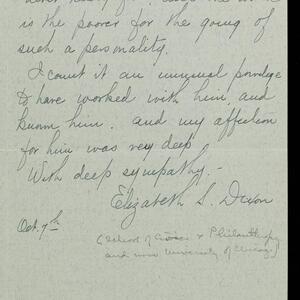 is the poorer for the going of
such a personality.
I count it an unusual privilege
to have worked with him, and
known him, and my affection
for him was very deep
With deep sympathy. -
Elizabeth S. Dixon
Oct. 7th
(School of Civics & Philanthropy
and now University of Chicago)